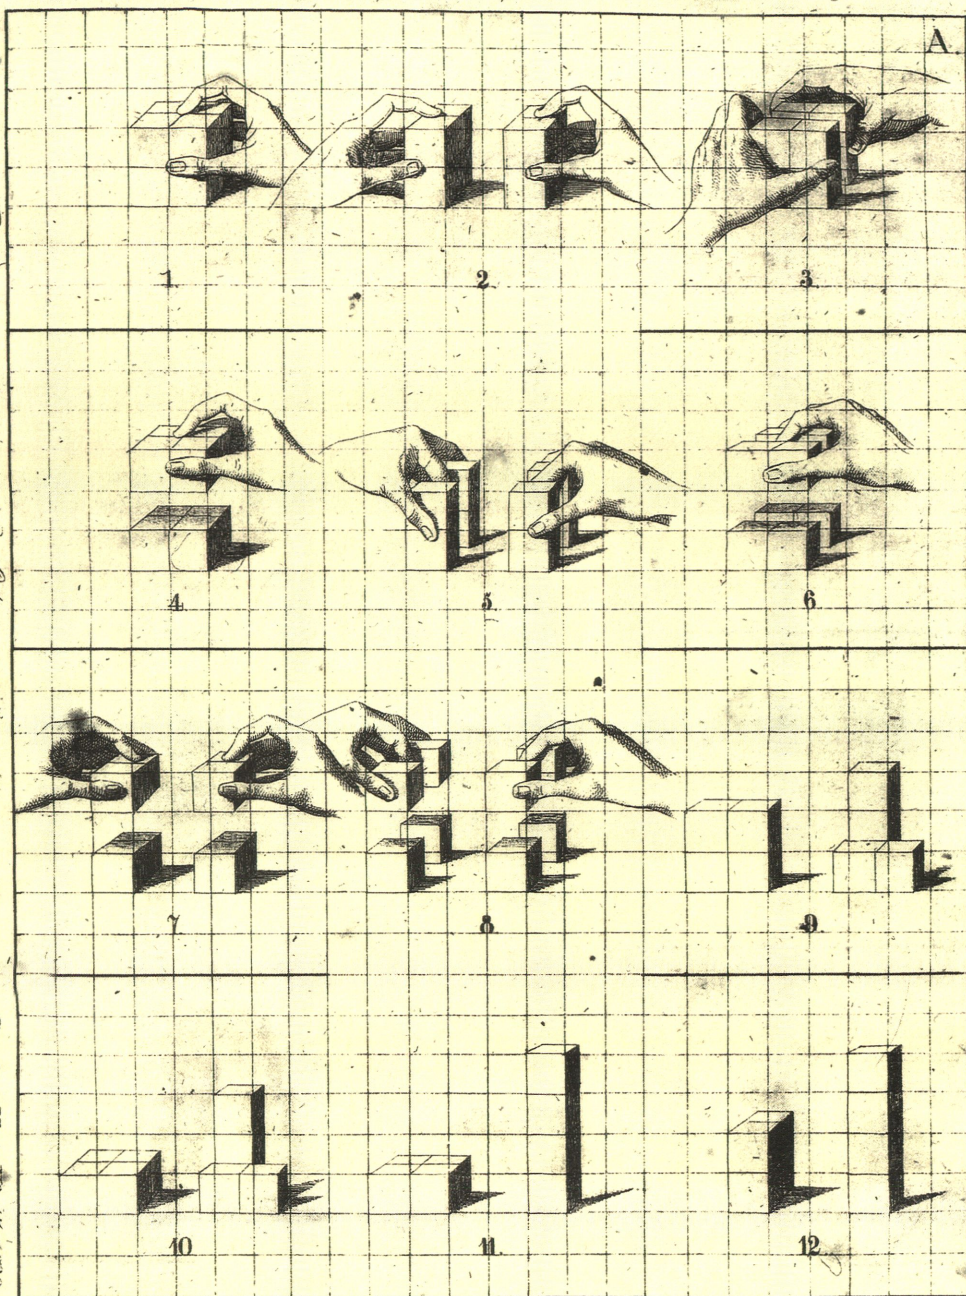 A.
1
2
3
4
5
6
7
8
9
10
11
12